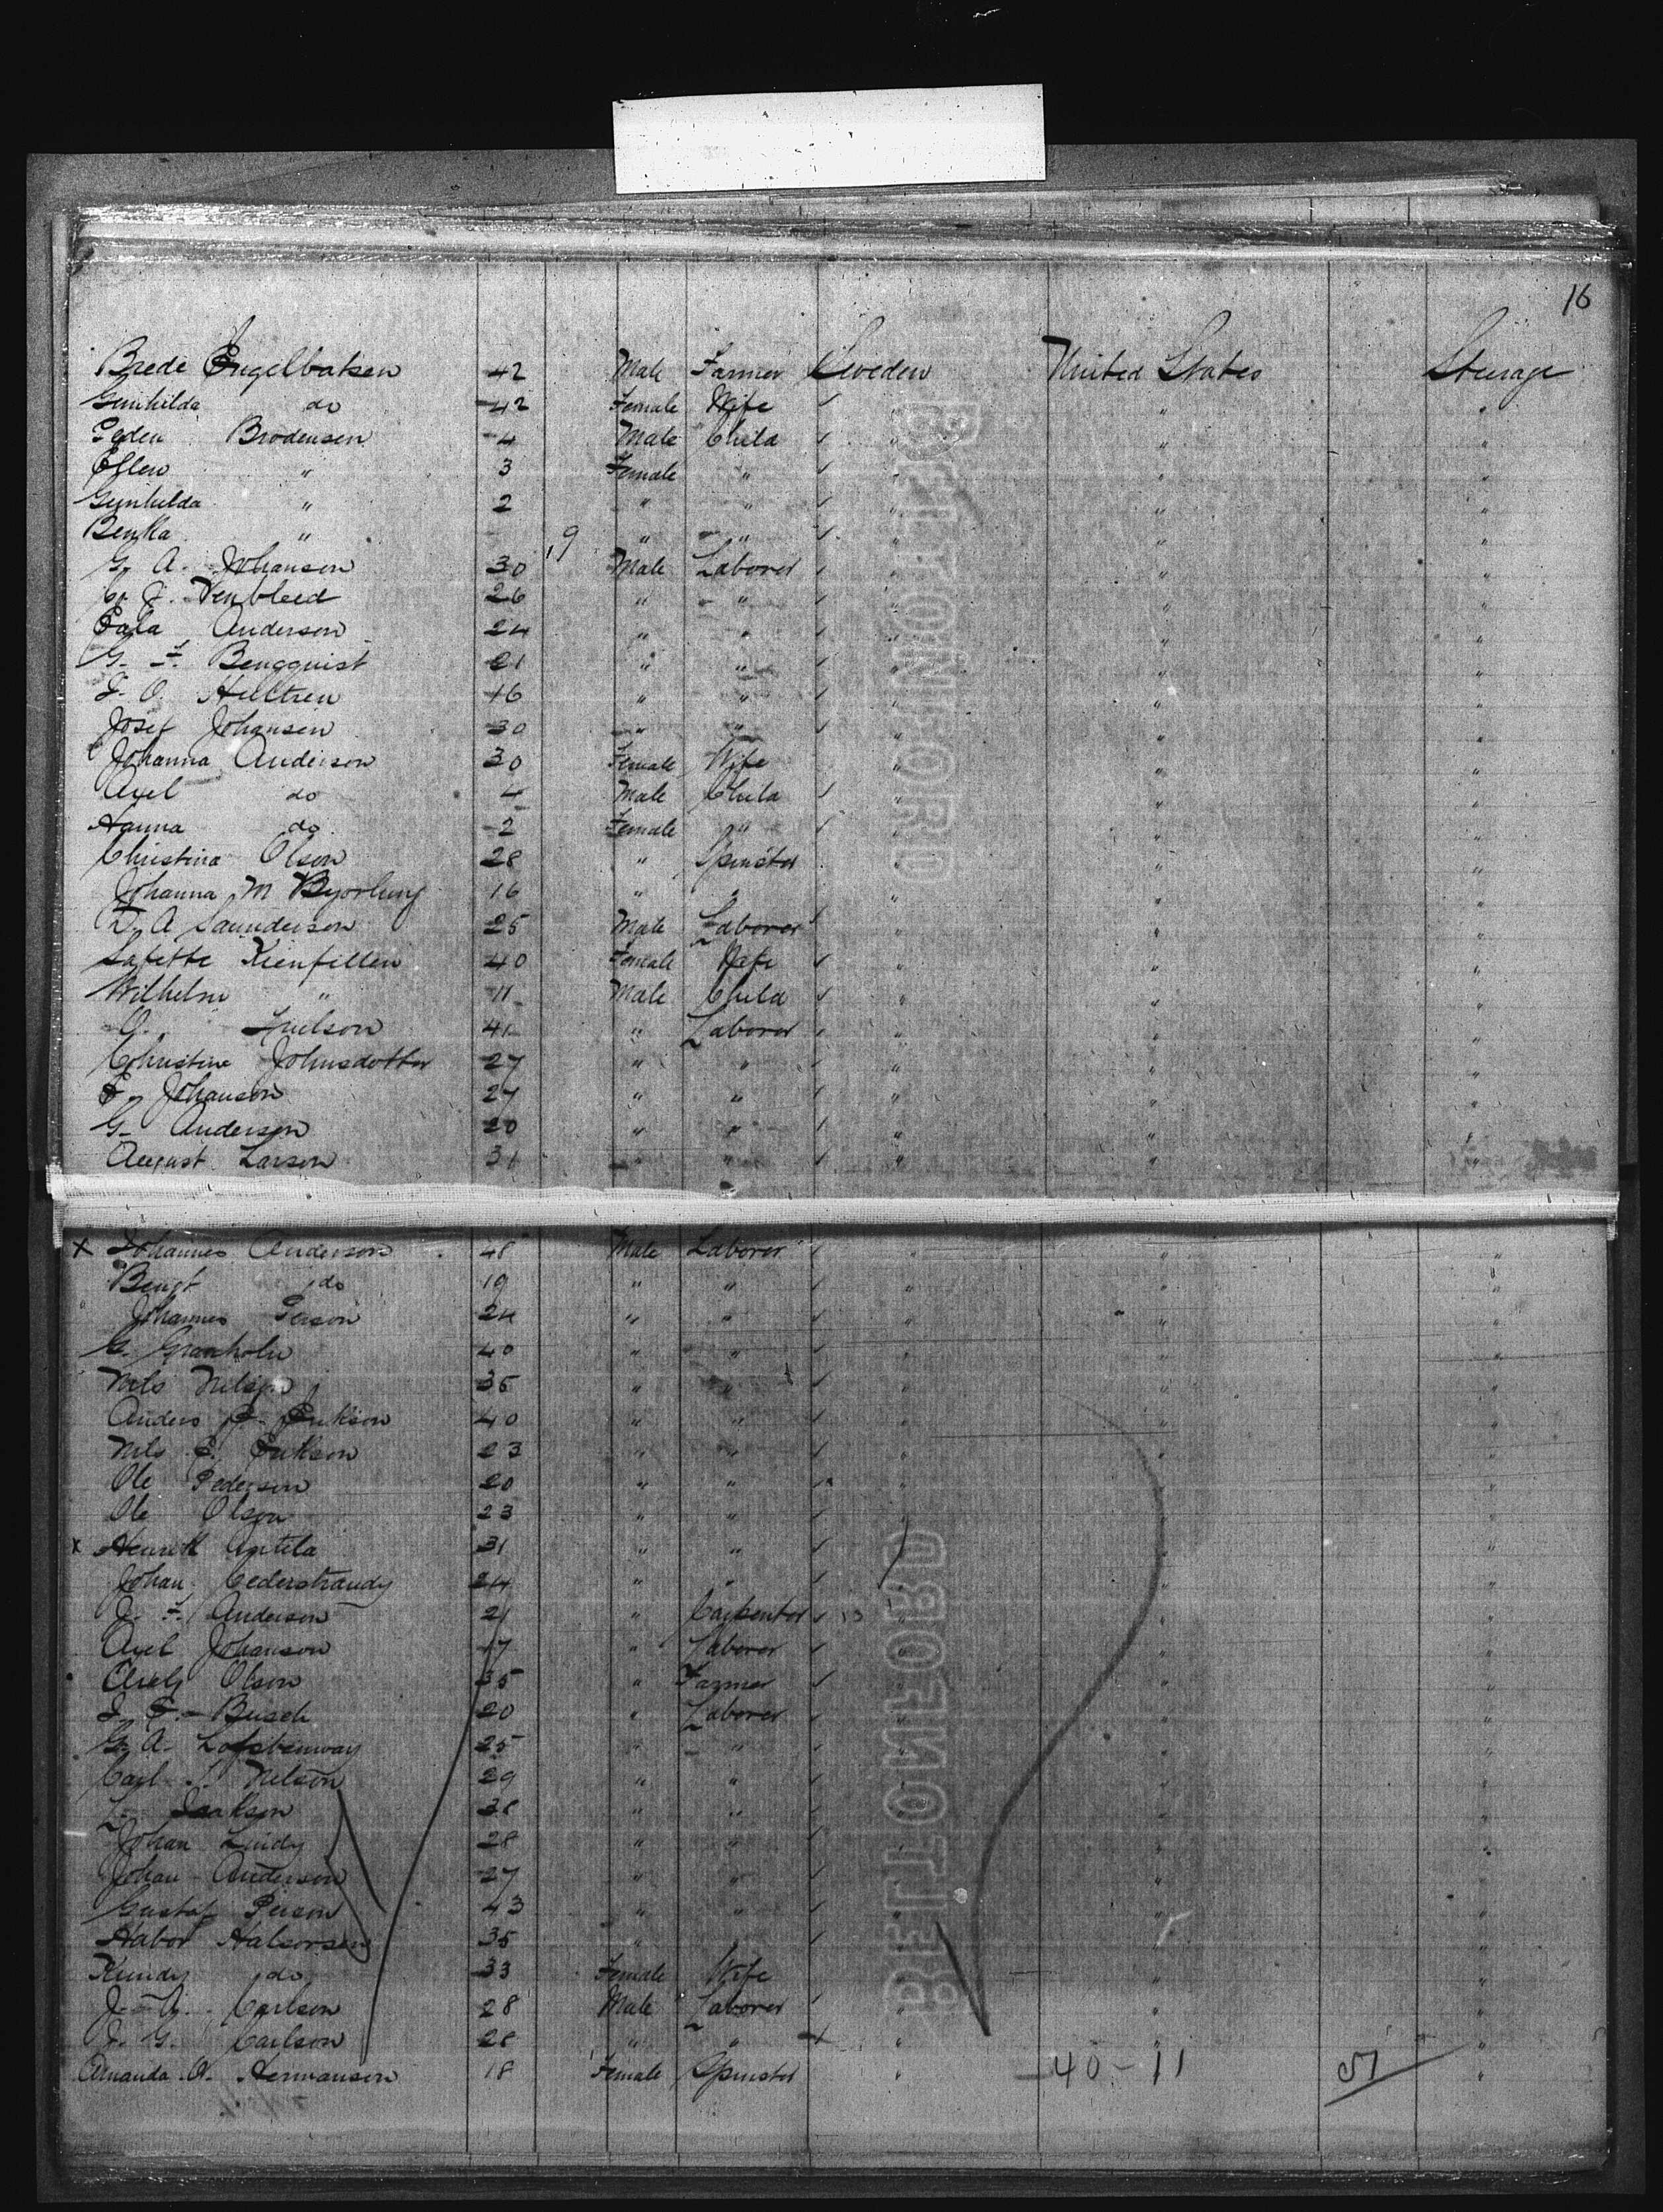 16
Brede Engelbatsen 42 Male Farmer Sweden United States Steerage
Gunhilda do 42 Female Wife " " "
Peden Brodensen 4 Male Child " " "
Ellen " 3 Female " " " "
Gunhilda " 2 " " " " "
" 9 " " " " "
G. A. Johanson 30 Male Laborer " " "
26 " " " " "
Anderson 24 " " " " "
G. F. Bengquist 21 " " " " "
J. O. Hultren 16 " " " " "
Josef Johansen 30 " " " " "
Johanna Anderson 30 Female Wife " " "
Axel do 4 Male Child " " "
Hanna do 2 Female " " " "
Christina Olson 28 " Spinster " " "
Johanna M Byorlung 16 " " " " "
D. A Saunderson 25 Male Laborer " " "
40 Female Wife " " "
Wilhelm " 11 Male Child " " "
O. 41 " Laborer " " "
Christine Johnsdotter 27 " " " " "
E. Johanson 27 " " " " "
G. Anderson 20 " " " " "
August Larson 31 " " " "
x Johannes Anderson 48 Male Laborer " " "
Bengt do 19 " " " " "
Johannes Person 24 " " " " "
G. Granholm 40 " " " " "
Nils Nilson 35 " " " " "
Anders P. Erikson 40 " " " " "
Nils E. Erikson 23 " " " " "
Ole Pederson 20 " " " " "
Ole Olson 23 " " " " "
x Henrik Antila 31 " " " " "
Johan Cederstrandy 24 " " " " "
J. F. Anderson 21 " Carpenter " " "
Axel Johanson 17 " Laborer " " "
Olson 35 " Farmer " " "
J. E. Busch 20 " Laborer " " "
G. A. 25 " " " " "
Carl Nelson 29 " " " " "
L. Isakson 38 " " " " "
Johan Lindy 28 " " " " "
Johan Anderson 27 " " " " "
Gustaf Person 43 " " " " "
Halvorsen 35 " " " " "
do 33 Female Wife " " "
J. A. Carlson 28 Male Laborer " " "
J. G. Carlson 28 " " " " "
Amanda A. Hermanson 18 Female Spinster " 40 - 11 51 "